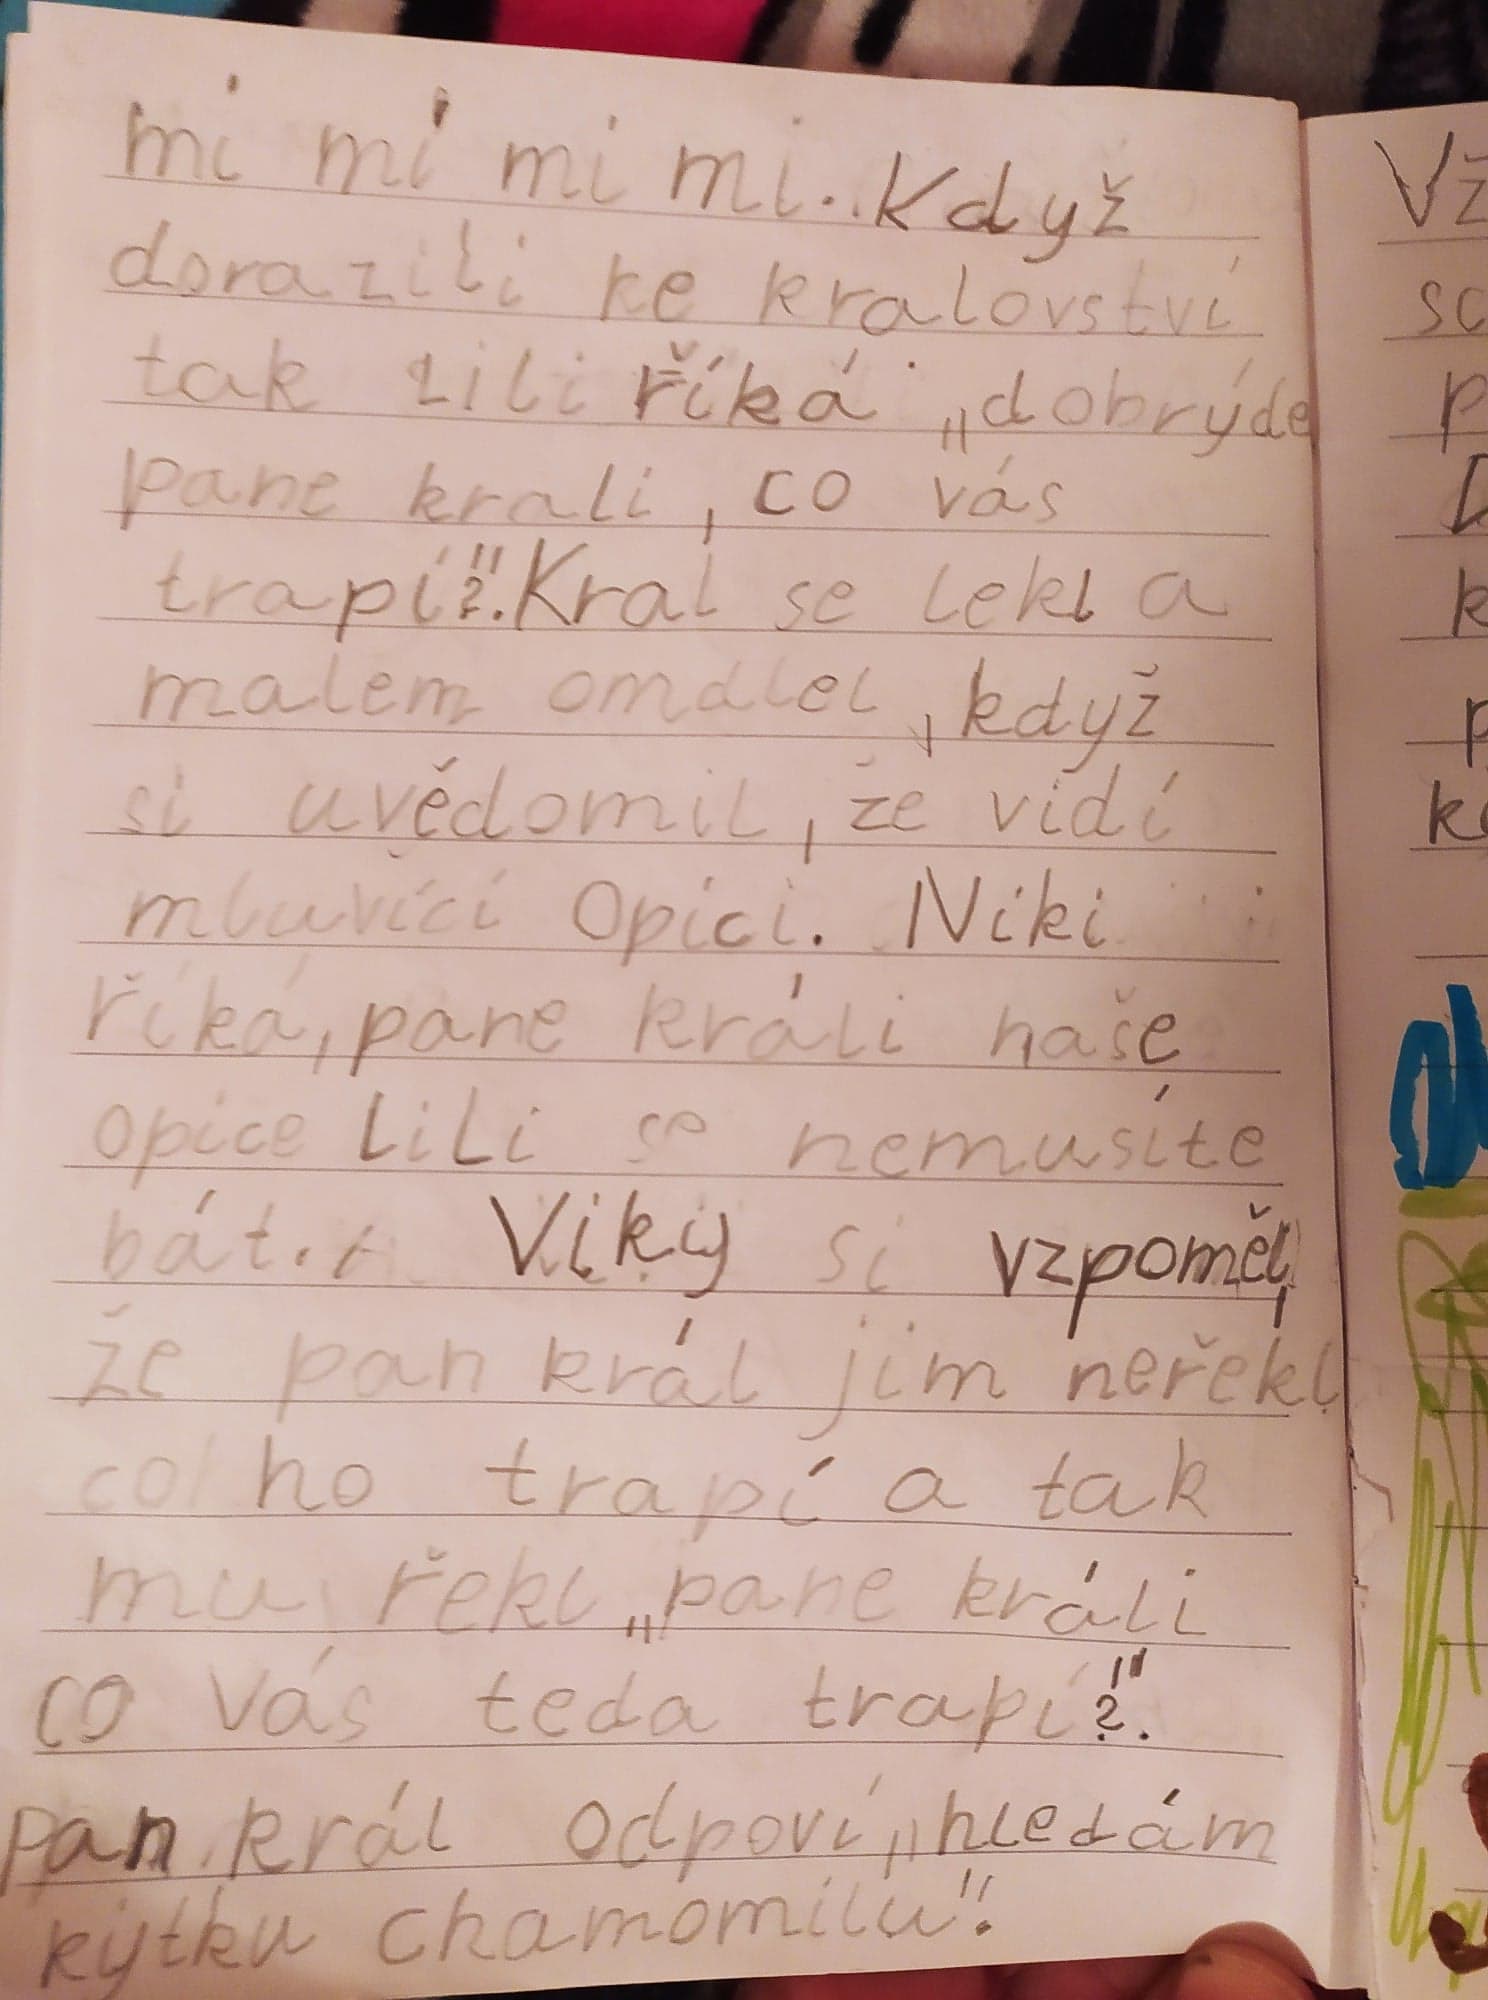 mi mi mi mi. Když
dorazili ke kralovství
tak lili říká „dobrýde
pane krali, co vás
trapí?". Kral se lekl a
malem omdlel, když
si uvědomil, že vidí
mluvící opici. Niki
říká, pane králi naše
opice Lili se nemusíte
bát. Viky si vzpoměl,
že pan král jim neřekl
co ho trapí a tak
mu řekl „pane králi
co vás teda trapí?".
pan král odpoví „hledám
kytku chamomilu".
Vž
sc
p
k
p